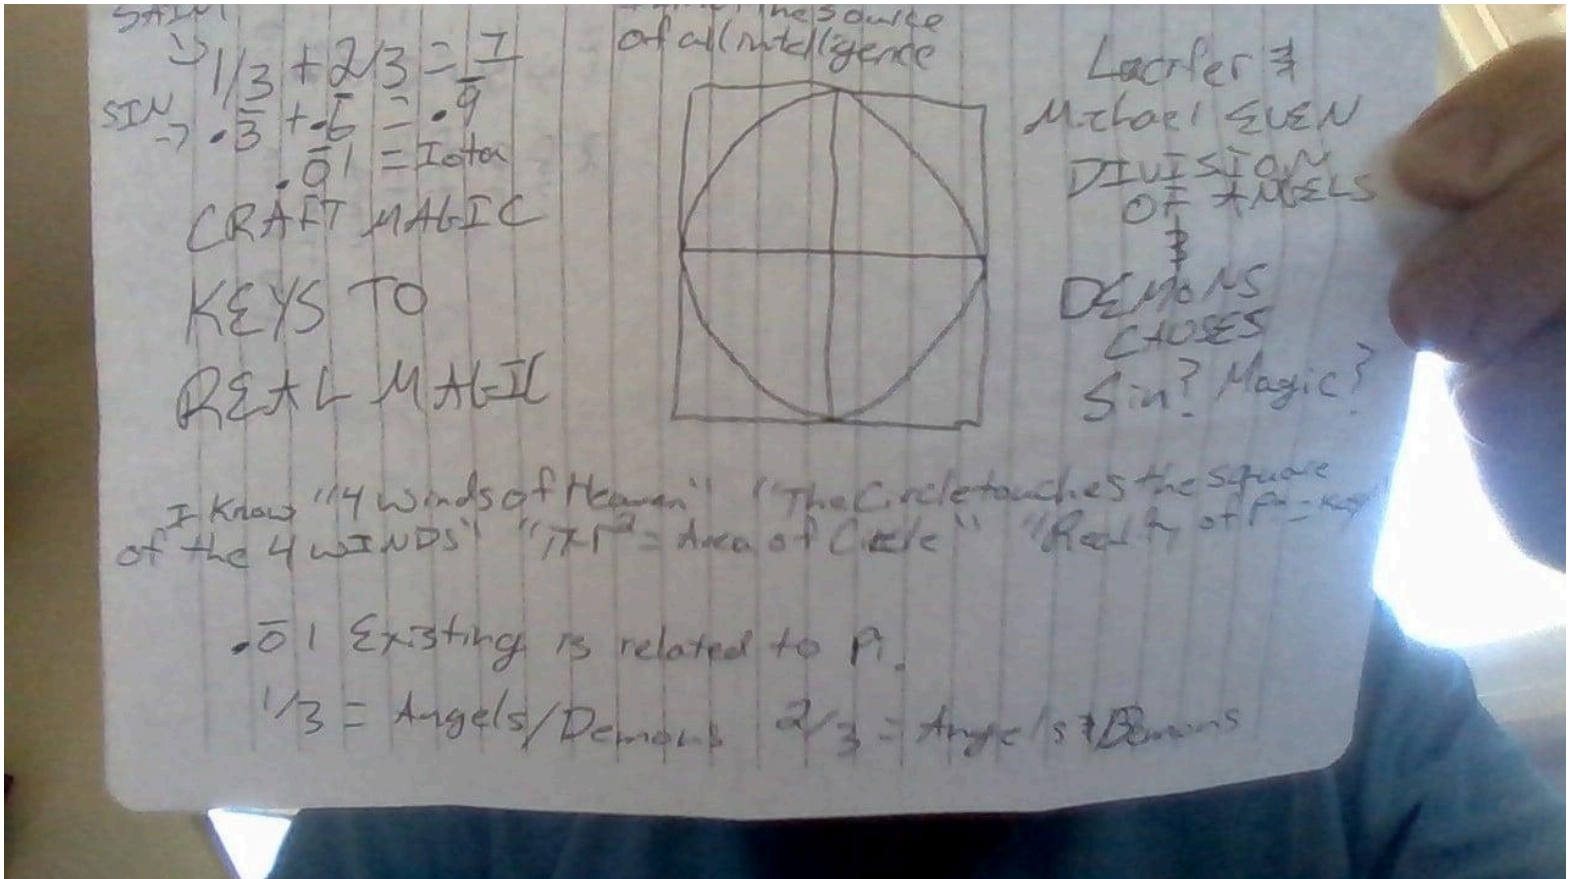 1/3 + 2/3 = I
SIN
.3̅ + .6̅ = .9̅
.0̅1 = Iota
CRAFT MAGIC
KEYS TO
REAL MAGIC
the source
of all intelligence
Lucifer &
Michael EVEN
DIVISION
OF ANGELS
&
DEMONS
CAUSES
Sin? Magic?
I Know "4 Winds of Heaven" "The Circle touches the square
of the 4 WINDS" "πr² = Area of Circle" "Reality of
.0̅1 Existing is related to Pi.
1/3 = Angels/Demons 2/3 = Angels & Demons